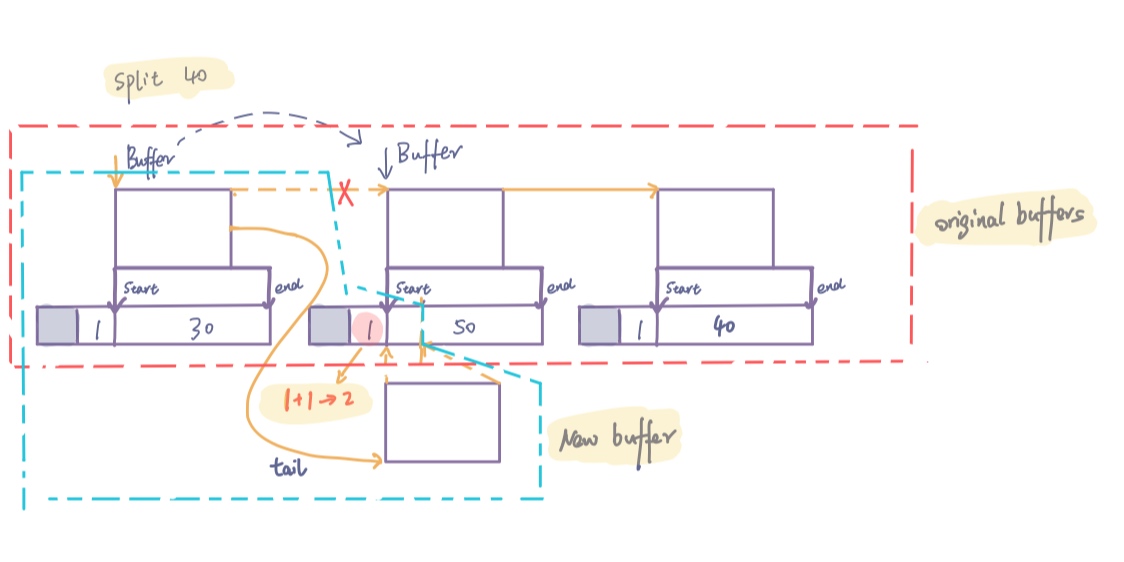 Split 40
Buffer
Buffer
original buffers
Start
end
Start
end
Start
end
1
30
1
50
1
40
1+1→2
New buffer
tail